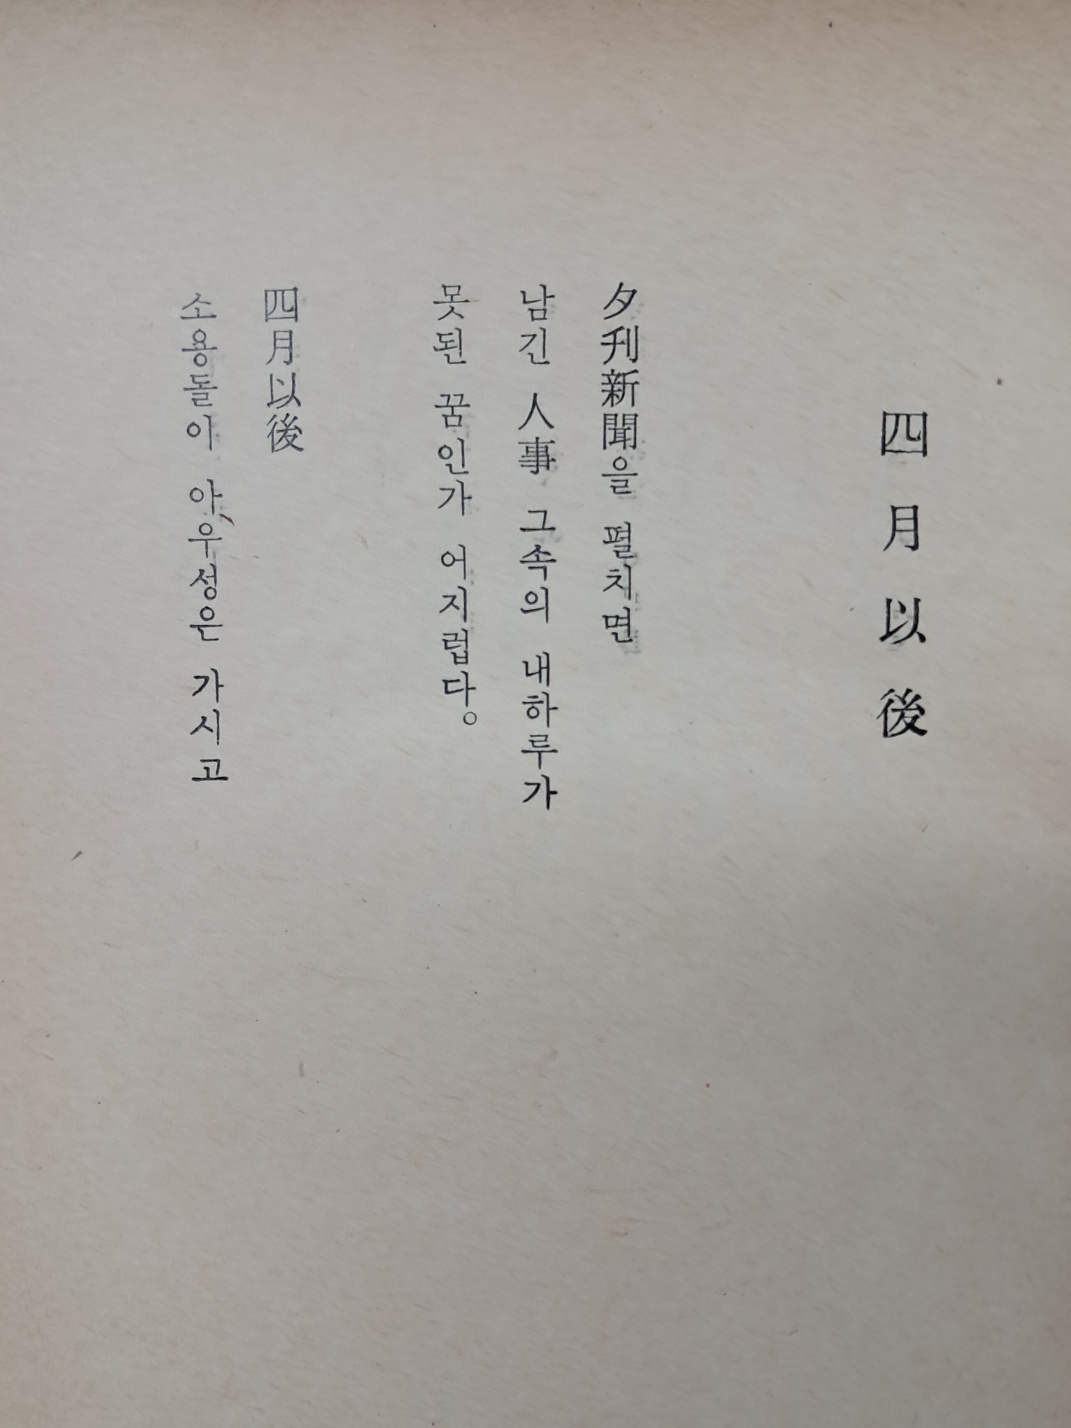 四月以後
夕刊新聞을 펼치면
남긴 人事 그속의 내하루가
못된 꿈인가 어지럽다。
四月以後
소용돌이 아우성은 가시고